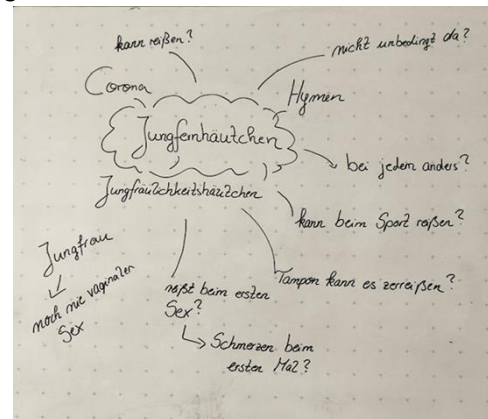 kann reißen?
nicht unbedingt da?
Corona
Hymen
Jungfernhäutchen
bei jedem anders?
Jungfräulichkeitshäutchen
kann beim Sport reißen?
Jungfrau
noch nie vaginalen
Sex
reißt beim ersten
Sex?
Tampon kann es zerreißen?
Schmerzen beim
ersten Mal?